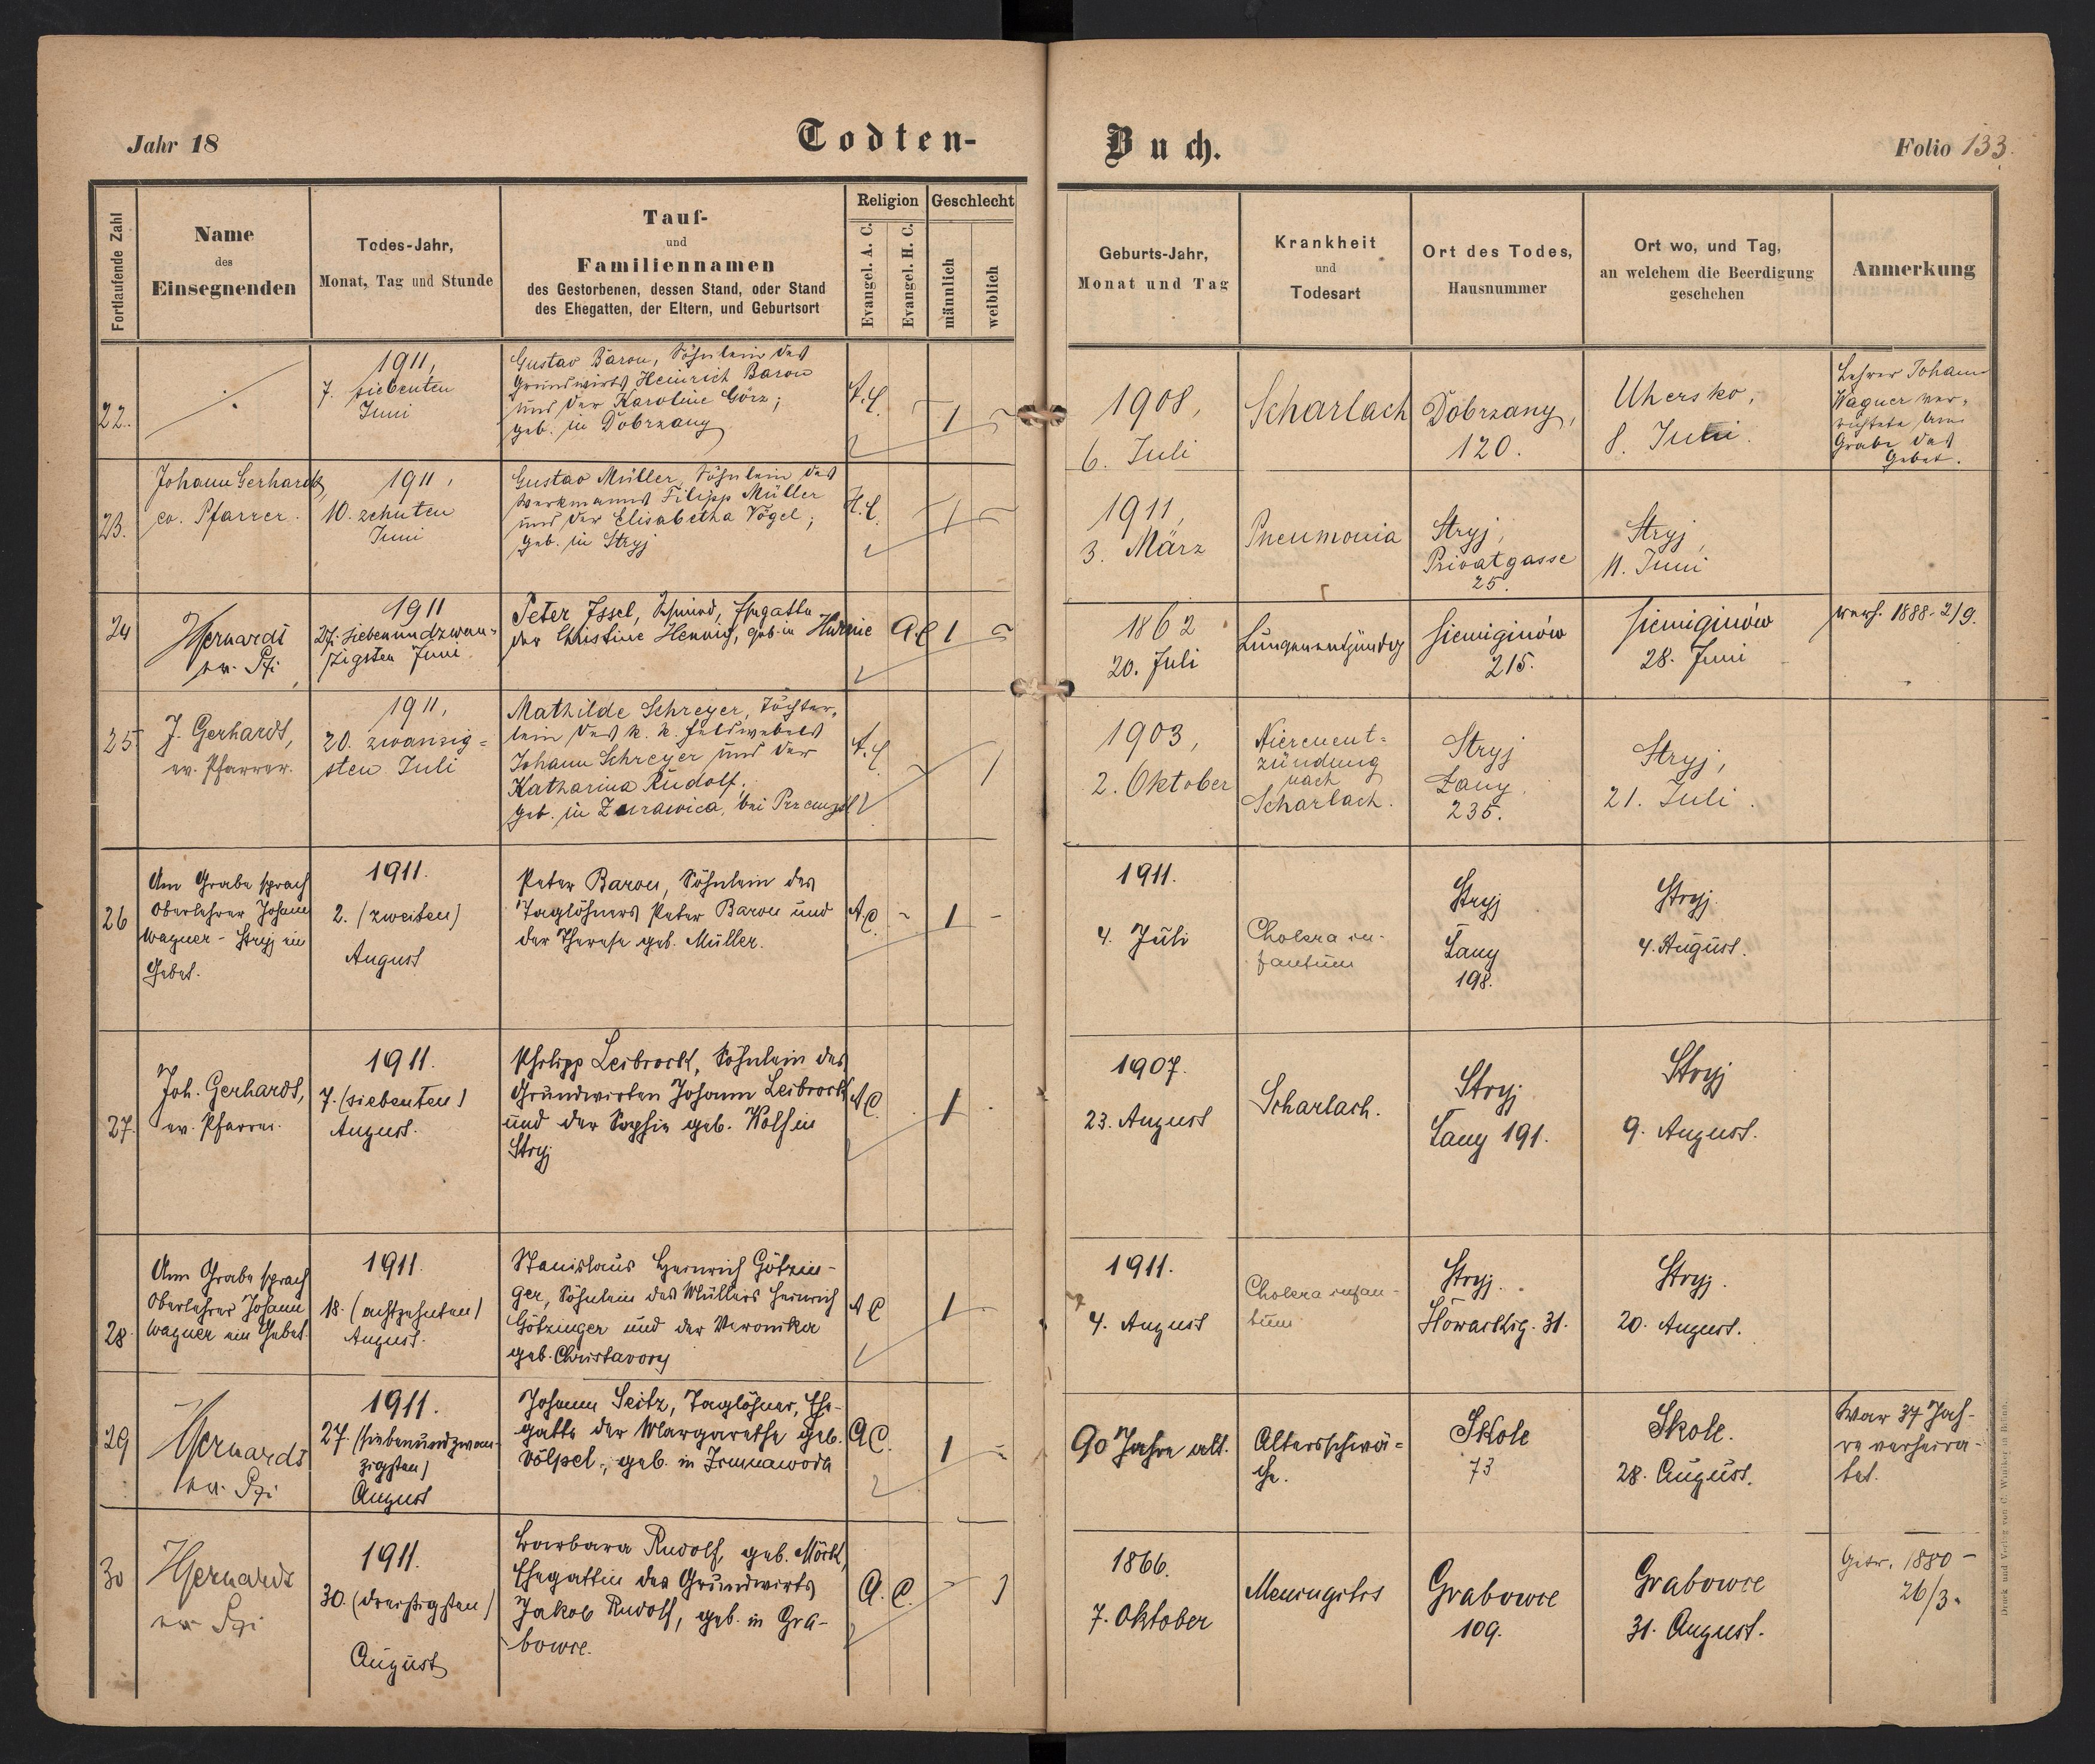 Jahr 18
Todten-
Buch.
Folio 133.
Fortlaufende Zahl
Name
des
Einsegnenden
Todes-Jahr,
Monat, Tag und Stunde
Tauf-
und
Familiennamen
des Gestorbenen, dessen Stand, oder Stand
des Ehegatten, der Eltern, und Geburtsort
Religion
Evangel. A. C.
Evangel. H. C.
Geschlecht
männlich
weiblich
Geburts-Jahr,
Monat und Tag
Krankheit
und
Todesart
Ort des Todes,
Hausnummer
Ort wo, und Tag,
an welchem die Beerdigung
geschehen
Anmerkung
22.
1911,
7. siebenten
Juni
Gustav Baron, Söhnlein des
Grundwirts Heinrich Baron
und der Karoline Görz;
geb. in Dobrzany
A.C.
1
1908,
6. Juli
Scharlach
Dobrzany,
120.
Uhersko,
8. Juni.
Lehrer Johann
Wagner ver-
richtete am
Grabe das
Gebet.
23.
Johann Gerhardt,
ev. Pfarrer.
1911,
10. zehnten
Juni
Gustav Müller, Söhnlein des
Werkmanns Filipp Müller
und der Elisabetha Vogel;
geb. in Stryj
H.C.
1
1911,
3. März
Pneumonia
Stryj,
Privatgasse
25.
Stryj,
11. Juni
24
ev.
1911
27. siebenundzwan-
zigsten Juni
Peter Issel, Schmied, Ehegatte
der Christine Hennig, geb. in
A.C
1
1862
20. Juli
Lungenentzündg
Siemiginów
215.
Siemiginów
28. Juni
verh. 1888 - 2/9.
25
J. Gerhardt,
ev. Pfarrer.
1911,
20. zwanzig-
sten Juli
Mathilde Schreyer, Töchter-
lein des k. k. Feldwebels
Johann Schreyer und der
Katharina Rudolf;
geb. in Zurawica, bei Przemysl
A.C.
1
1903,
2. Oktober
Nierenent-
zündung
nach
Scharlach.
Stryj
Łany
235.
Stryj,
21. Juli.
26
Am Grabe sprach
Oberlehrer Johann
Wagner - Stryj ein
Gebet.
1911.
2. (zweiten)
August
Peter Baron, Söhnlein des
Taglöhners Peter Baron und
der Therese geb. Müller.
A.C.
1
1911.
4. Juli
Cholera in-
fantum
Stryj
Łany
198.
Stryj.
4. August.
27.
Joh. Gerhardt,
ev. Pfarrer.
1911.
7. (siebenten)
August.
Philipp Leibrock, Söhnlein des
Grundwirten Johann Leibrock
und der Sophie geb. Wolf in
Stryj
A.C.
1
1907.
23. August
Scharlach.
Stryj.
Łany 191.
Stryj
9. August.
28.
Am Grabe sprach
Oberlehrer Johann
Wagner ein Gebet.
1911.
18. (achtzehnten)
August.
Stanislaus Heinrich Götzin-
ger, Söhnlein des Müllers Heinrich
Götzinger und der Weronika
geb.
A C
1
1911.
4. August
Cholera infan-
tum
Stryj.
31.
Stryj.
20. August.
29
ev.
1911.
27. (siebenundzwan-
zigsten)
August
Johann Seitz, Taglöhner, Ehe-
gatte der Margarethe geb.
Völpel, geb. in
A.C.
1
90 Jahre alt.
Altersschwä-
che.
Skole
73
Skole.
28. August.
War 37 Jah-
re verheira-
tet.
30
ev.
1911.
30. (dreißigsten)
August
Barbara Rudolf, geb. Möckl,
Ehegattin des Grundwirts
Jakob Rudolf, geb. in Gra-
bowce.
A. C.
1
1866.
7. Oktober
Meningitis
Grabowce
109.
Grabowce
31. August.
Getr. 1880 -
26/3.